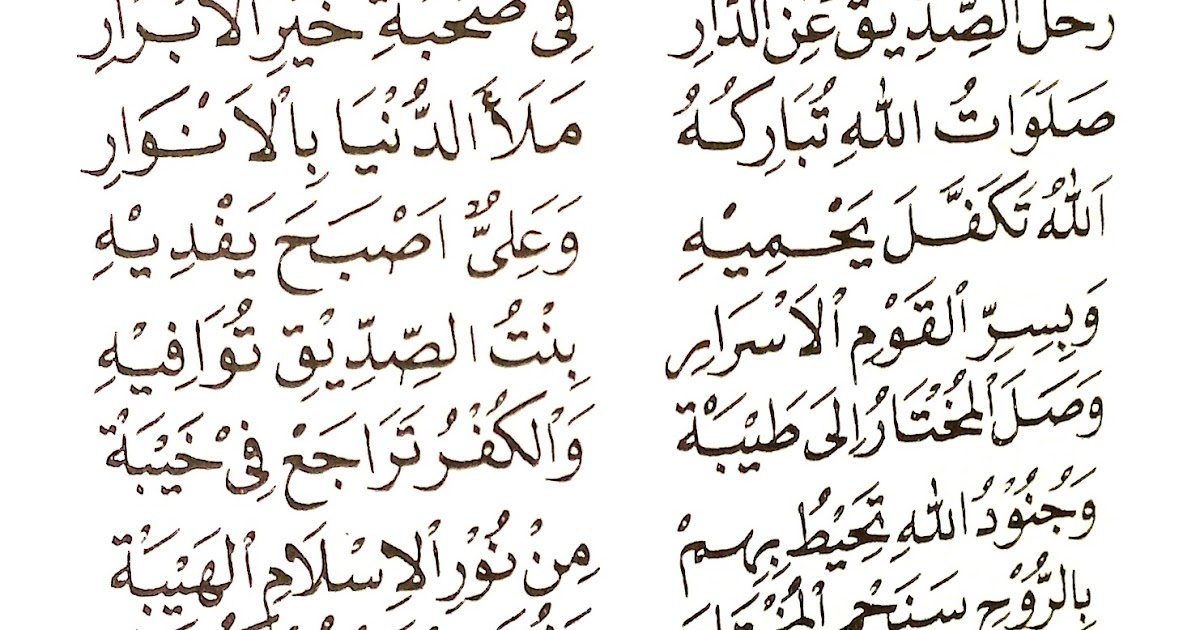 رَحَلَ الصِّدِّيقُ عَنِ الدَّارِ فِى صُحْبَةِ خَيْرِ الْاَبْرَارِ
صَلَوَاتُ اللّٰهِ تُبَارِكُهُ مَلَأَ الدُّنْيَا بِالْاَنْوَارِ
اَللّٰهُ تَكَفَّلَ يَحْمِيْهِ وَعَلِىٌّ اَصْبَحَ يَفْدِيْهِ
وَبِسِرِّ الْقَوْمِ الْاَسْرَارِ بِنْتُ الصِّدِّيْقِ تُوَافِيْهِ
وَصَلَ الْمُخْتَارُ اِلَى طَيْبَةْ وَالْكُفْرُ تَرَاجَعْ فِىْ خَيْبَةْ
وَجُنُوْدُ اللّٰهِ تَحِيْطُ بِهِمْ مِنْ نُوْرِ الْاِسْلَامِ الْهَيْبَةْ
بِالرُّوْحِ سَنَحْمِ